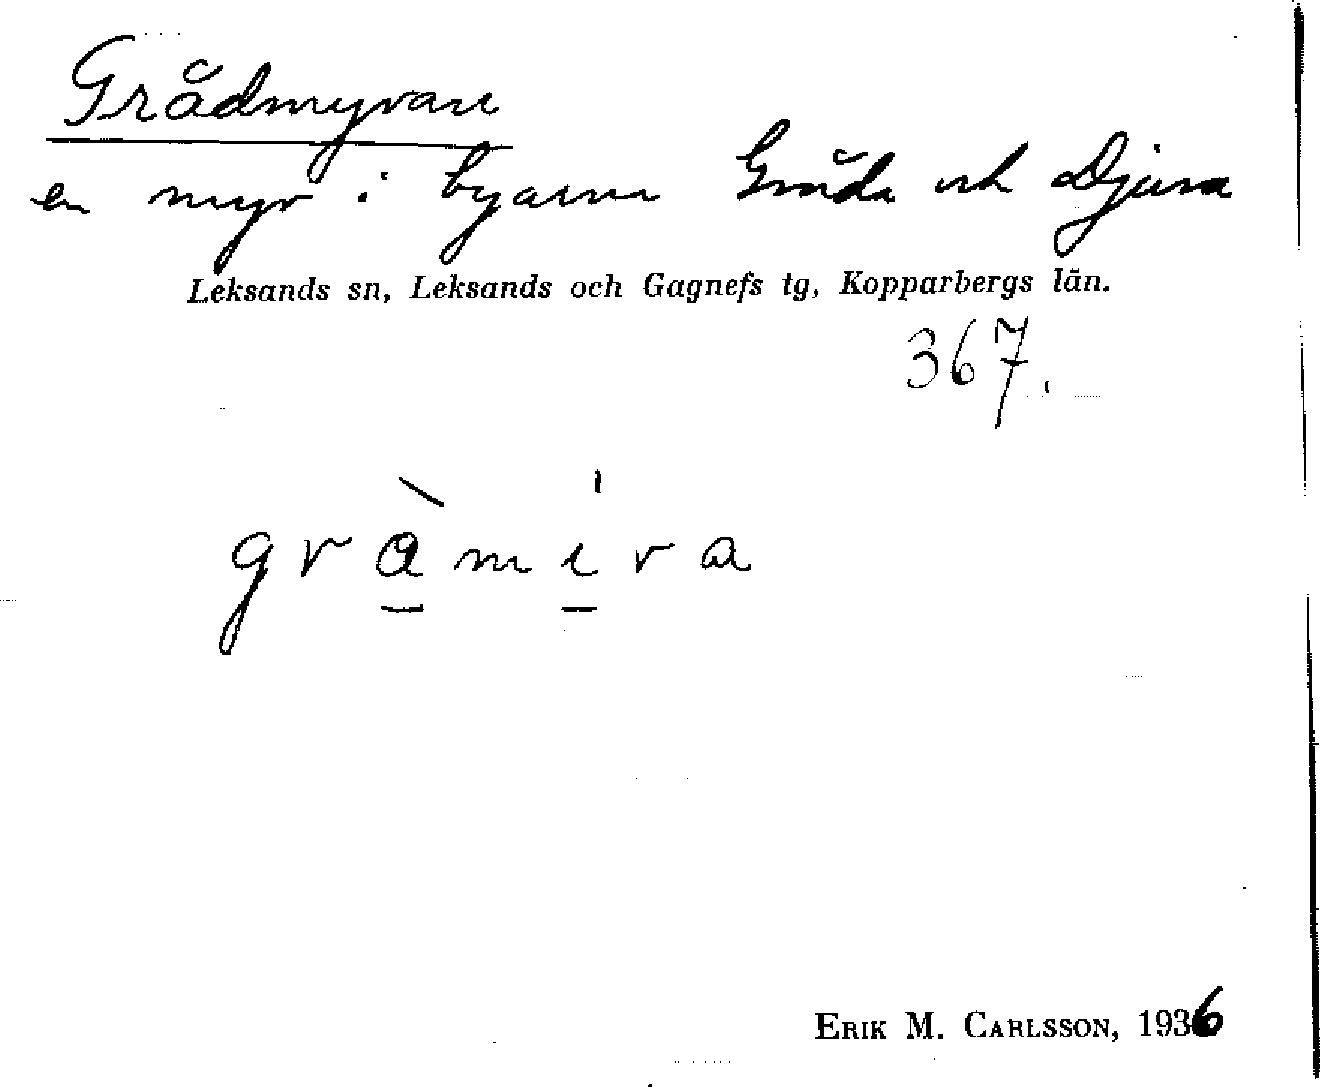 Grådmyran
en myr i byarna Gråda och Djura
Leksands sn, Leksands och Gagnefs tg, Kopparbergs län.
367.
gràmira
ERIK M. CARLSSON, 1936